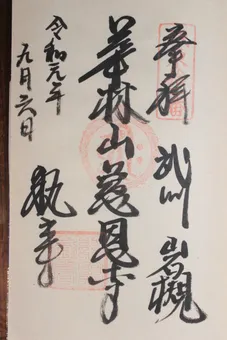 奉拝 武州 岩槻
華林山慈恩寺
執事
令和元年
九月六日